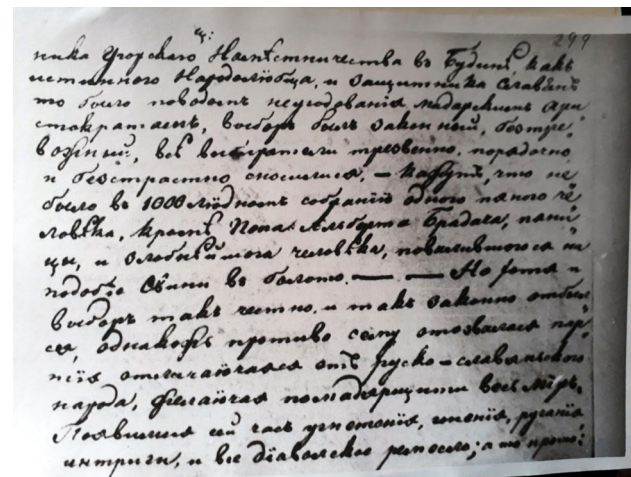 299
ника Угорскаго Намѣстничества въ Будинѣ, какъ
истинного Народолюбца, и защитника Славянъ
то было поводомъ негодованія мадярскимъ ари
стократамъ, выборъ былъ законный, безтре
вожный, всѣ выбиратели трезвенно, порядочно
и безстрастно сносилися, — кажутъ, что не
было въ 1000 людномъ собраніи одного пяного че
ловѣка, кромѣ Попа Альберта Брадача, пани
цы, и злобнѣйшога человѣка, повалившогося на
подобіе свини въ болото. — — Но хотя и
выборъ такъ честно, и такъ законно отбыл
ся, однакожъ противо сему отозвалася пар
тія отличаючаяся отъ руско-славянского
народа, желаючая помадярщити весь Міръ.
Появилися въ часъ угнотенія, гоненія, руганія,
интриги, и все діавольское ремесло; а то прото: